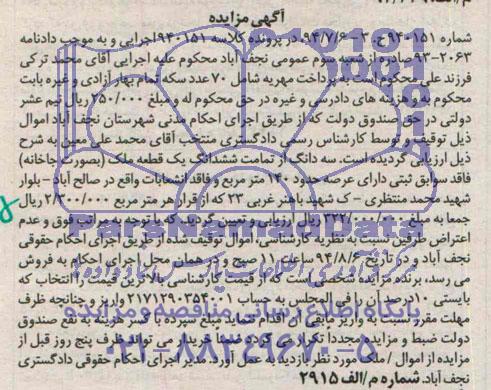 آگهی مزایده
شماره ۹۴۰۱۵۱ج۳-۹۴/۷/۶-در پرونده کلاسه ۹۴۰۱۵۱اجرایی و به موجب دادنامه
۹۳-۲۰۶۳صادره از شعبه سوم عمومی نجف آباد محکوم علیه اجرایی آقای محمد ترکی
فرزند علی محکوم است به پرداخت مهریه شامل ۷۰ عدد سکه تمام بهار آزادی و غیره بابت
محکوم به و هزینه های دادرسی و غیره در حق محکوم له و مبلغ ۲۵۰/۰۰۰ ریال نیم عشر
دولتی در حق صندوق دولت که از طریق اجرای احکام مدنی شهرستان نجف آباد اموال
ذیل توقیف و توسط کارشناس رسمی دادگستری منتخب آقای محمد علی معین به شرح
ذیل ارزیابی گردیده است. سه دانگ از تمامت ششدانگ یک قطعه ملک (بصورت چاخانه)
فاقد سوابق ثبتی دارای عرصه حدود ۱۴۰ متر مربع و فاقد انشعابات واقع در صالح آباد - بلوار
شهید محمد منتظری - ک شهید باهنر غربی ۲۳ که از قرار هر متر مربع ریال
جمعا به مبلغ ریال ارزیابی و تعیین گردید که با توجه به مراتب فوق و عدم
اعتراض طرفین نسبت به نظریه کارشناسی، اموال توقیف شده از طریق اجرای احکام حقوقی
نجف آباد و در تاریخ ۹۴/۸/۶ ساعت ۱۱ صبح و در همان محل اجرای احکام به فروش
می رسد، برنده مزایده شخصی است که از قیمت کارشناسی بالاترین قیمت را انتخاب که
بایستی ۱۰درصد آن را فی المجلس به حساب ۲۱۷۱۲۹۰۳۵۴۰۰۱ واریز و چنانچه ظرف
مهلت مقرر نسبت به واریز مابقی آن اقدام ننماید مبلغ سپرده با کسر هزینه به نفع صندوق
دولت ضبط و مزایده مجددا تکرار می گردد ضمنا خریدار می تواند ظرف پنج روز قبل از
مزایده از اموال / ملک مورد نظر بازدید به عمل آورد. مدیر اجرای احکام حقوقی دادگستری
نجف آباد. شماره م/الف ۲۹۱۵
ParsNamadData
پایگاه اطلاع رسانی مناقصه و مزایده